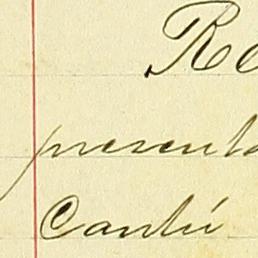 Re
presenta
Cantú